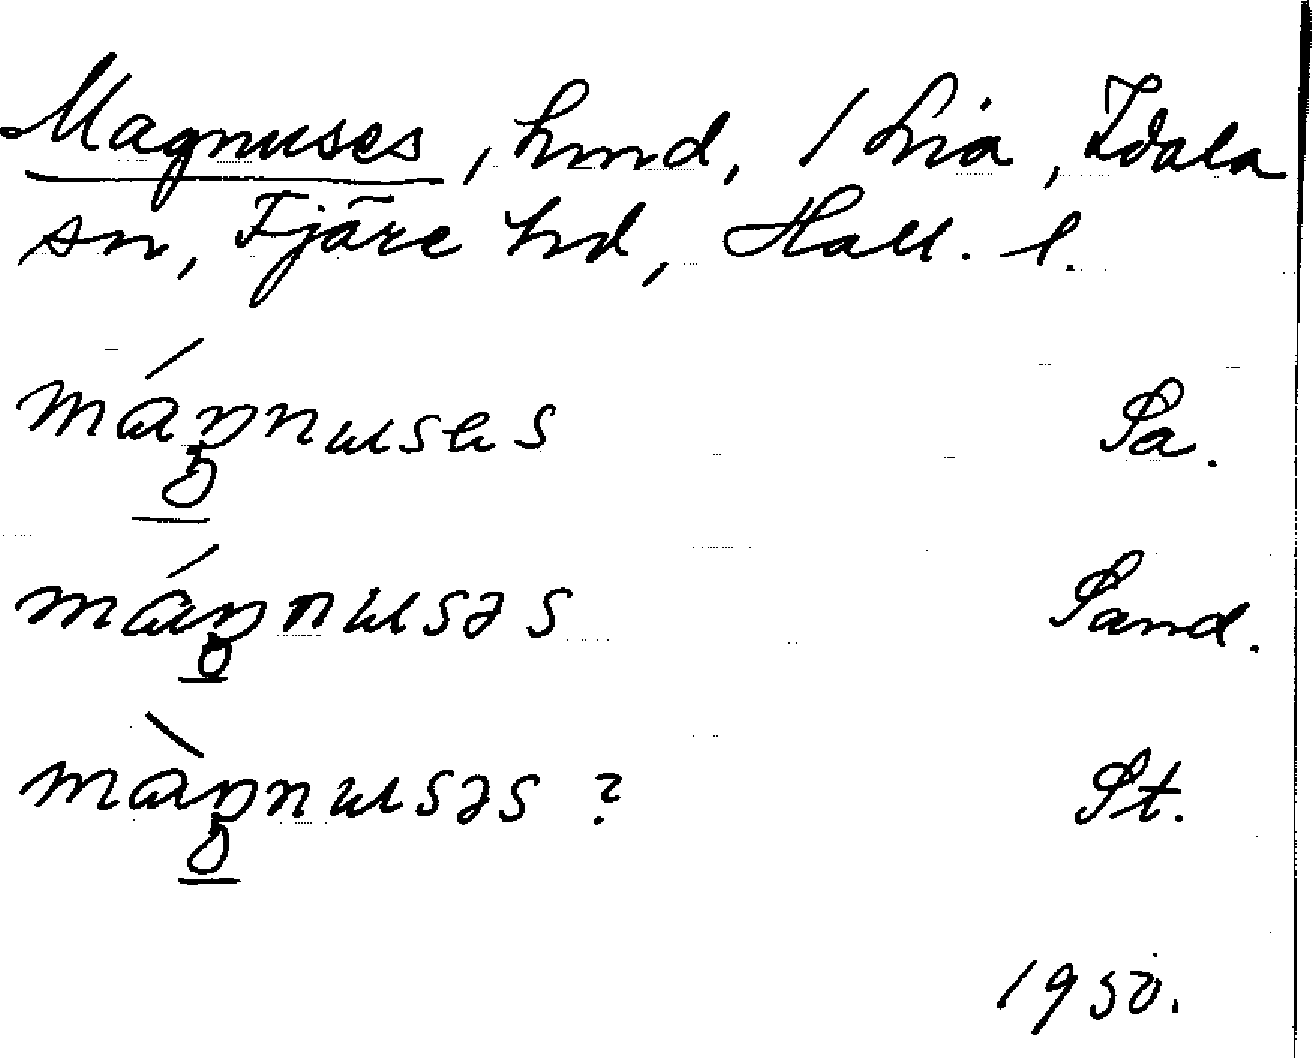 Magnuses, hmd, 1 Lia, Idala
sn, Fjäre hd, Hall. l.
máŋnuses Sa.
máŋnusəs Sand.
màŋnusəs ? St.
1950.